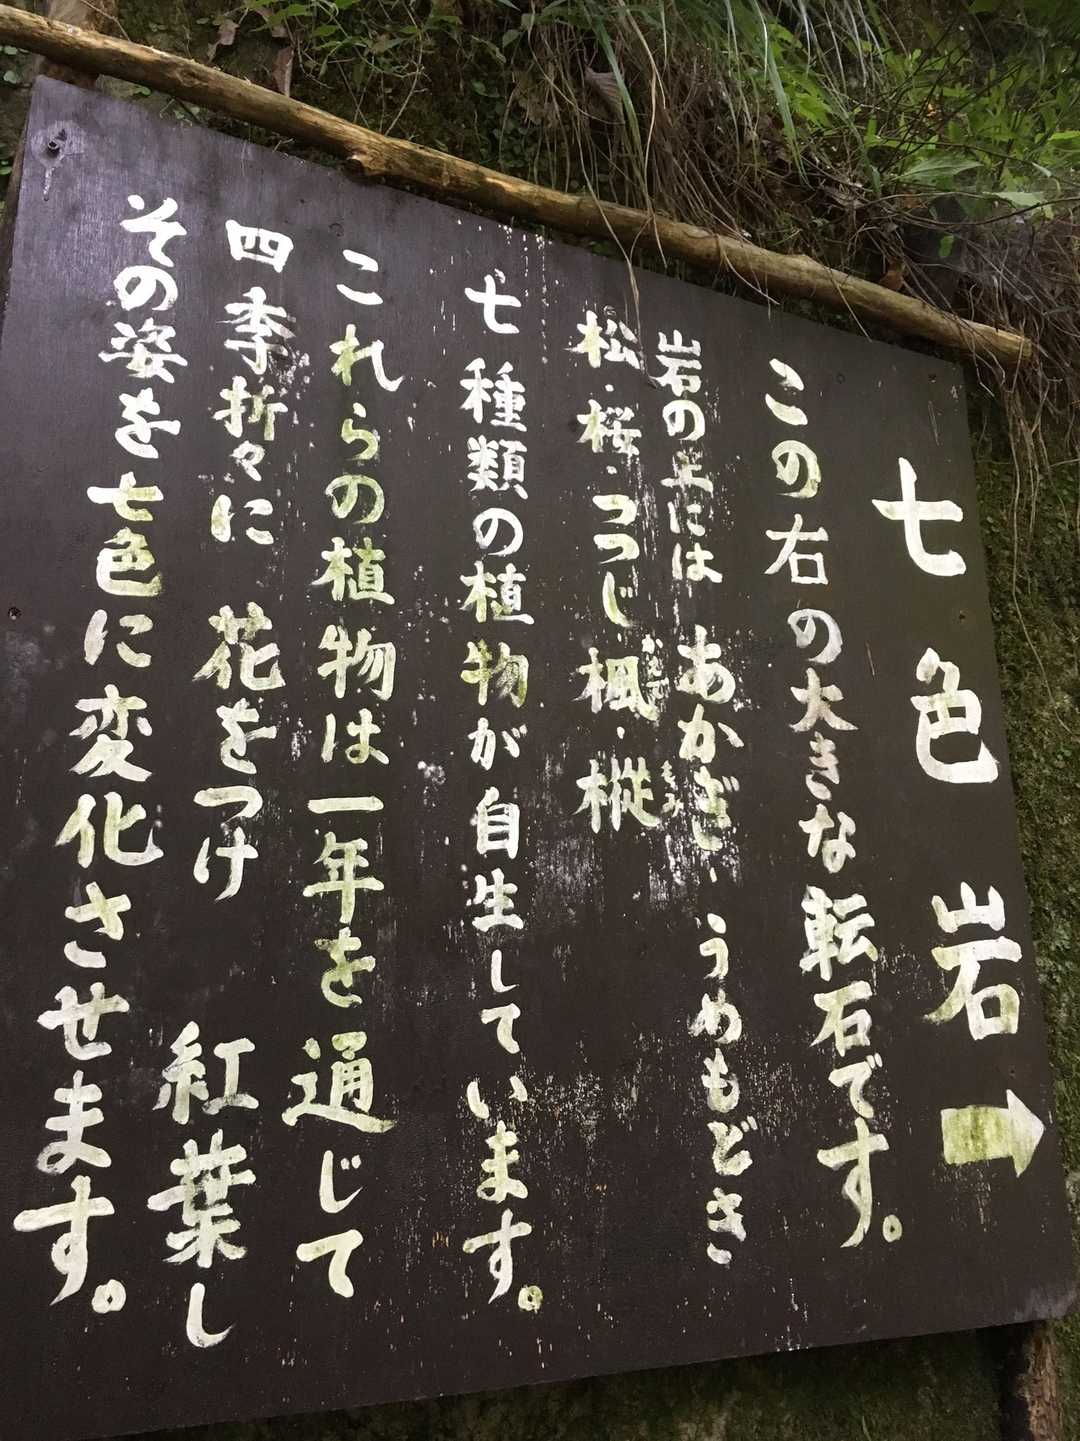 七色岩
この右の大きな転石です。
岩の上には あかざし・うめもどき
松・桜・つつじ・楓・樅
七種類の植物が自生しています。
これらの植物は一年を通じて
四季折々に 花をつけ 紅葉し
その姿を七色に変化させます。